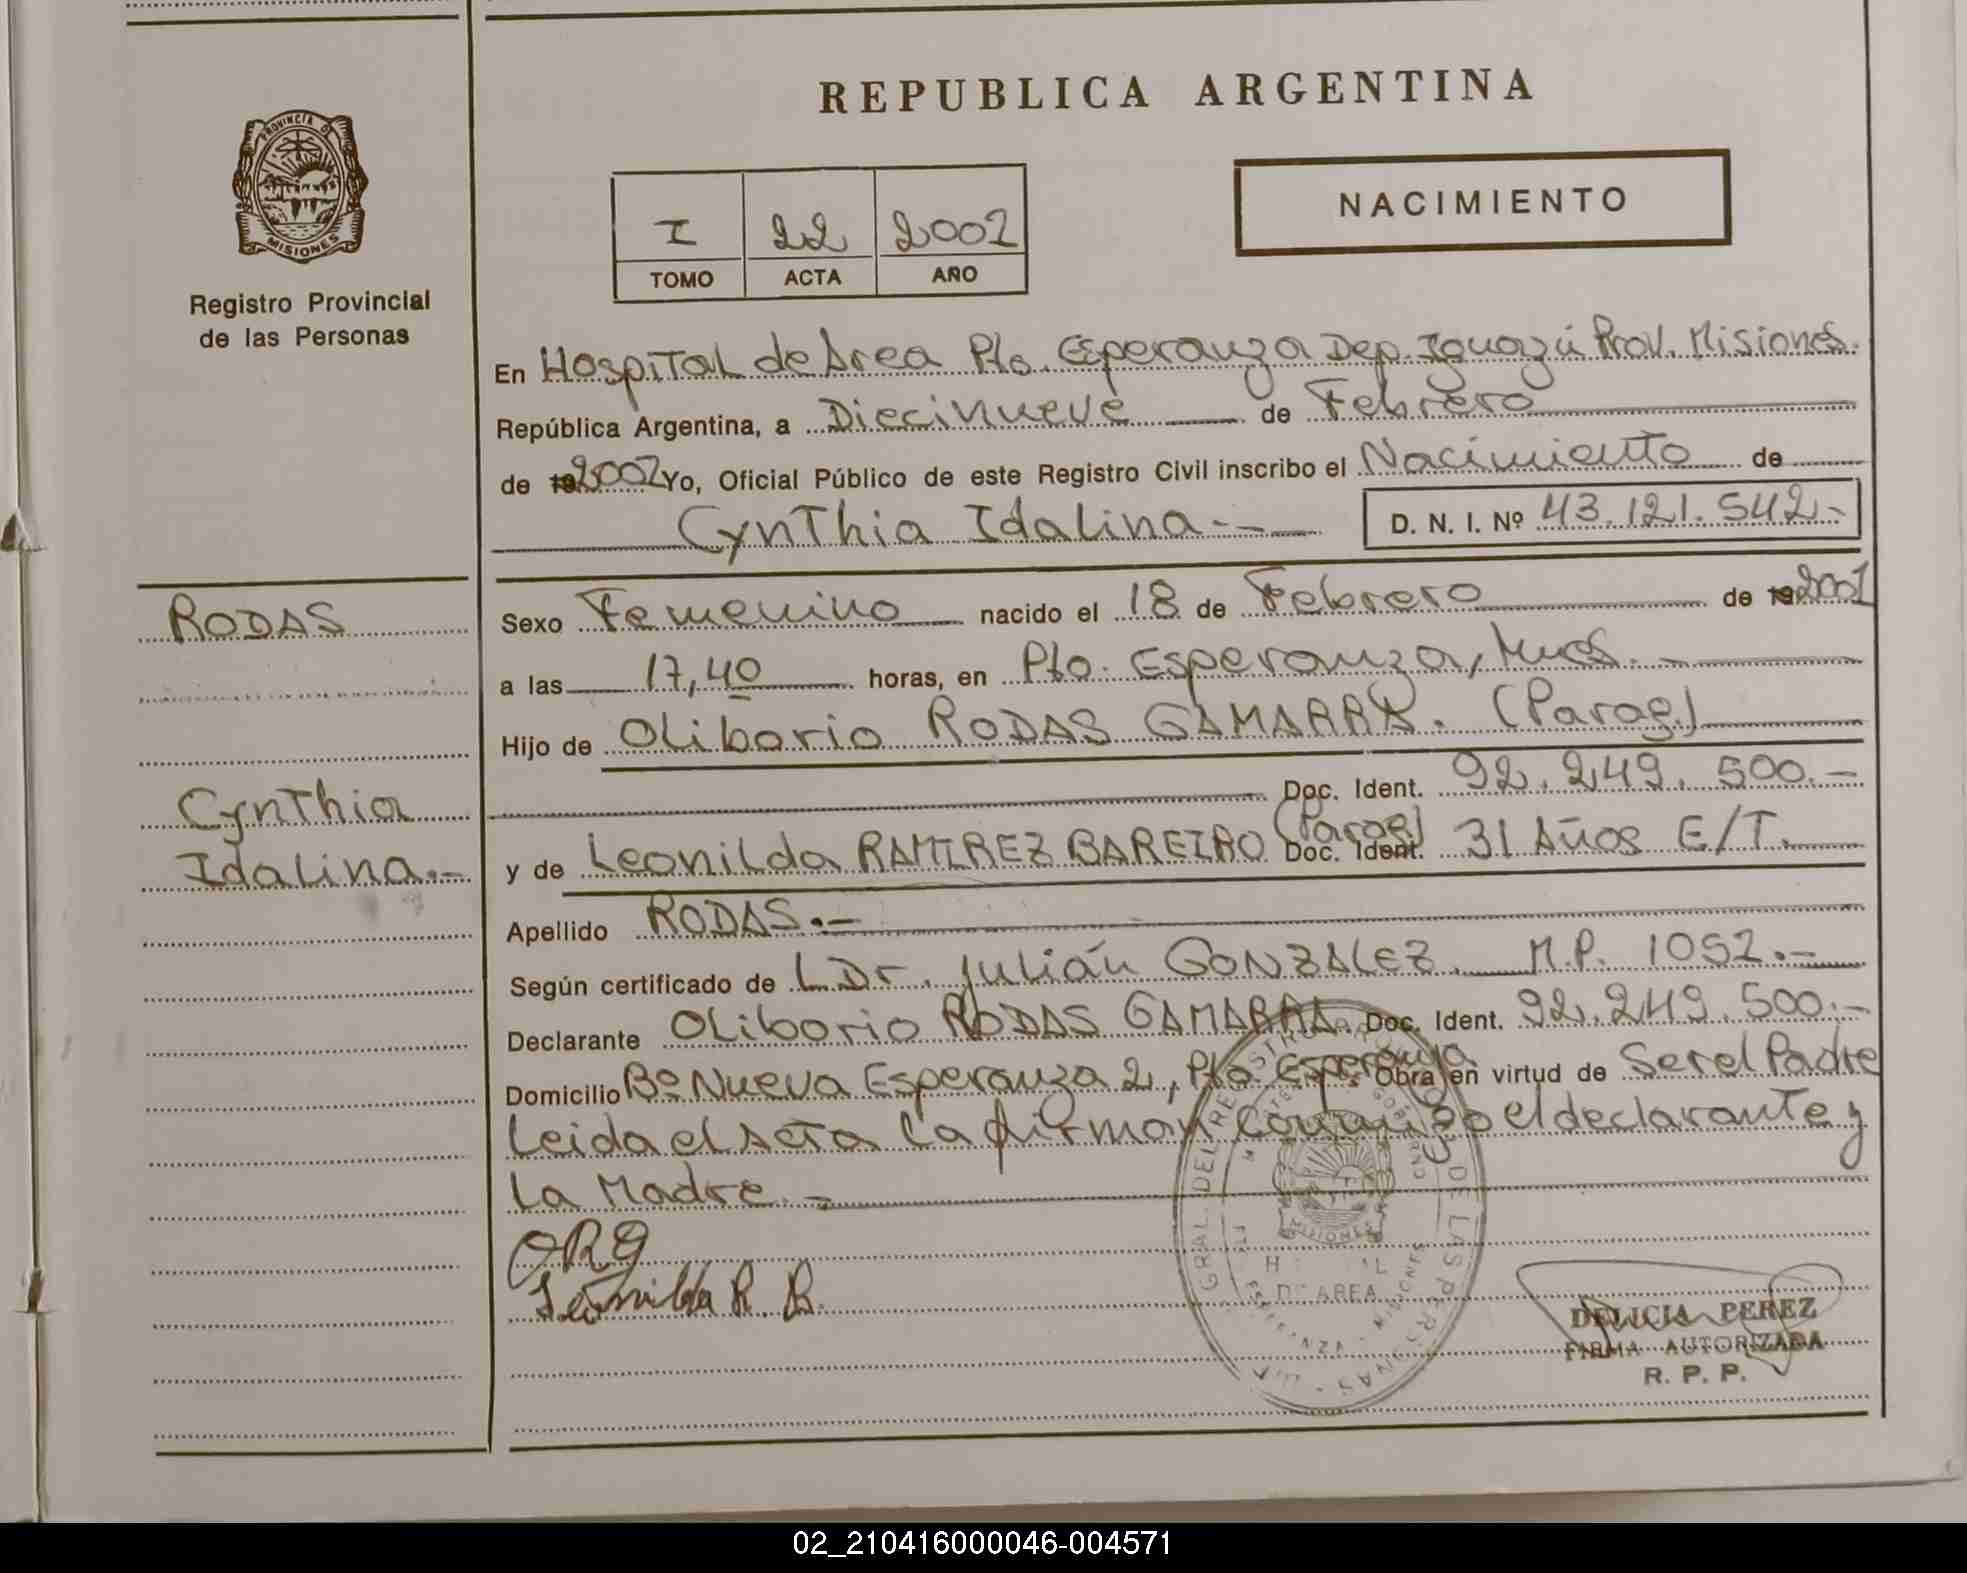 REPUBLICA ARGENTINA
PROVINCIA DE
MISIONES
Registro Provincial
de las Personas
I 22 2002
TOMO ACTA AÑO
NACIMIENTO
En Hospital de Area Pto. Esperanza Dep. Iguazú Prov. Misiones.
República Argentina, a Diecinueve de Febrero
de 19 2002 Yo, Oficial Público de este Registro Civil inscribo el Nacimiento de
Cynthia Idalina.-
D. N. I. Nº 43.121.542.-
RODAS
Cynthia
Idalina.-
Sexo Femenino nacido el 18 de Febrero de 19 2002
a las 17,40 horas, en Pto. Esperanza, Mnes.-
Hijo de Oliborio RODAS GAMARRA. (Parag.)
Doc. Ident. 92.249.500.-
y de Leonilda RAMIREZ BAREIRO (Parag) Doc. Ident. 31 Años E/T.
Apellido RODAS.-
Según certificado de L Dr. Julián GONZALEZ. M.P. 1052.-
Declarante Oliborio RODAS GAMARRA. Doc. Ident. 92.249.500.-
Domicilio Bº Nueva Esperanza 2, Pto. Esperanza Obra en virtud de Ser el Padre
Leida el Acta la firman conmigo el declarante y
La Madre.-
ORG
Leonilda R. B.
GRAL. DEL REGISTRO DE LAS PERSONAS
MISIONES
DE AREA
MISIONES
DELICIA PEREZ
FIRMA AUTORIZADA
R. P. P.
02_210416000046-004571